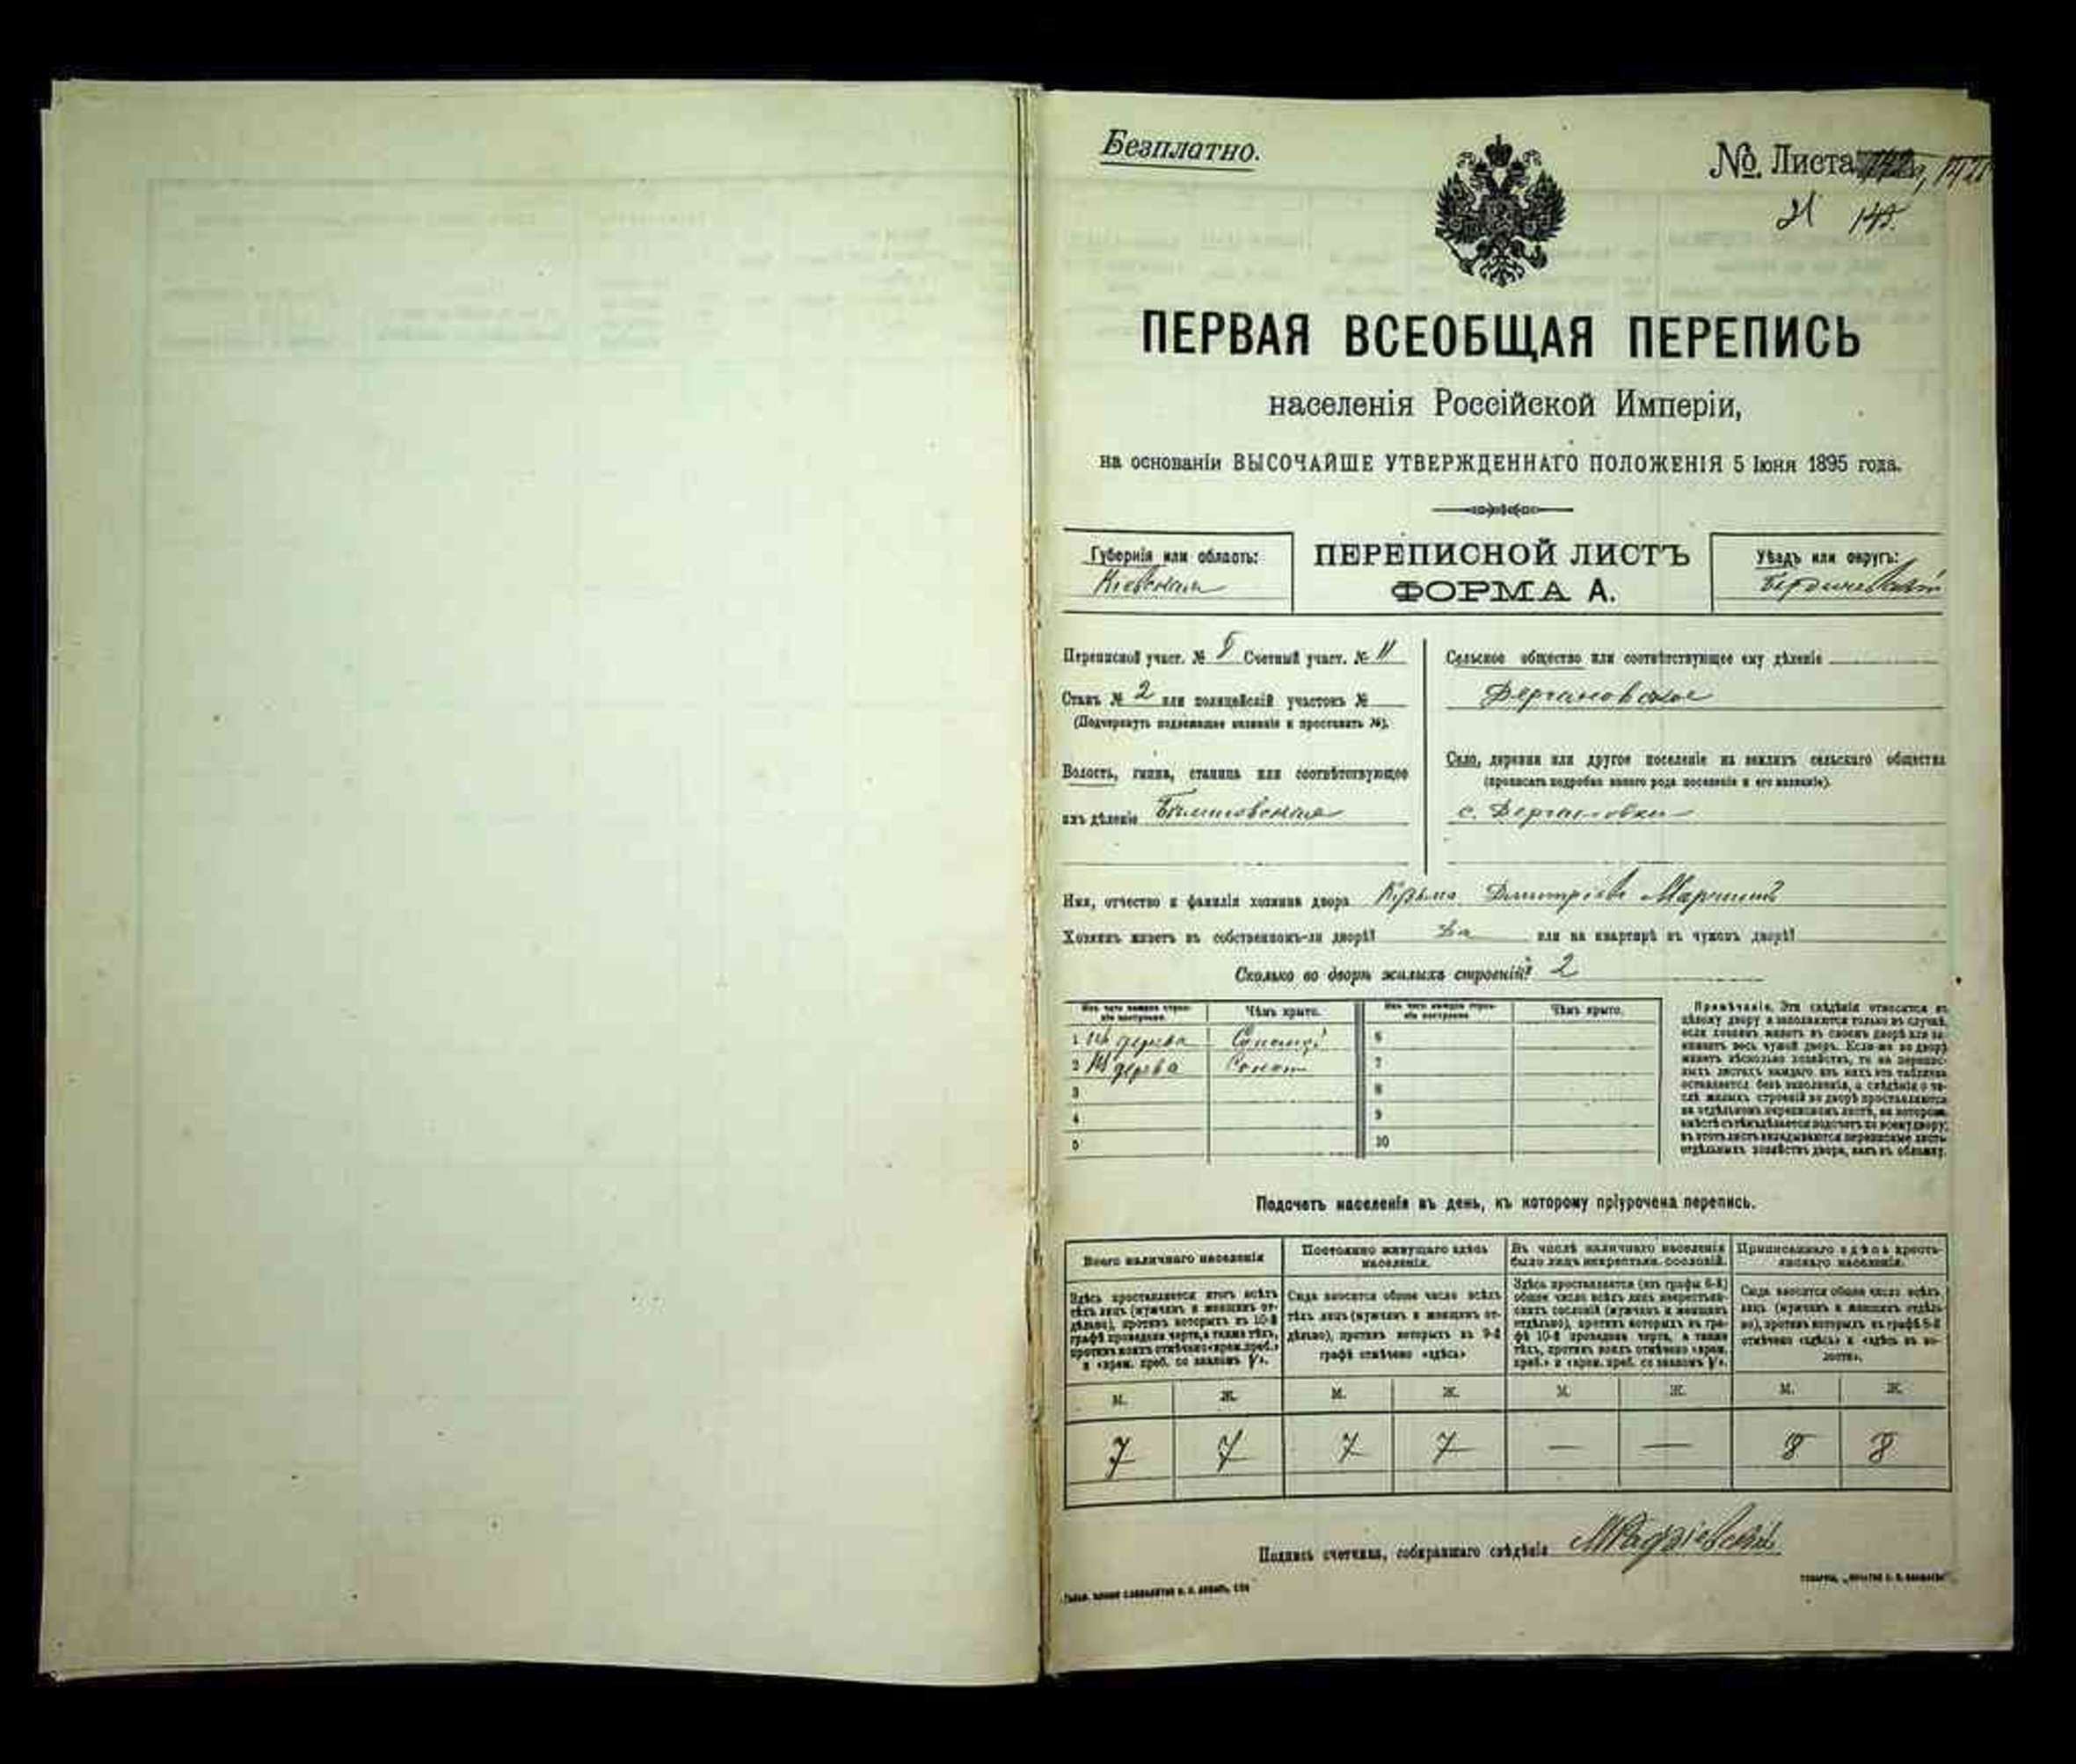 Безплатно.
№ Листа
21
ПЕРВАЯ ВСЕОБЩАЯ ПЕРЕПИСЬ
населенія Россійской Имперіи,
на основаніи ВЫСОЧАЙШЕ УТВЕРЖДЕННАГО ПОЛОЖЕНІЯ 5 Іюня 1895 года.
Губернія или область:
Кіевская
ПЕРЕПИСНОЙ ЛИСТЪ
ФОРМА А.
Уѣздъ или округъ:
Бердичевскій
Переписной участ. № 8 Счетный участ. № 11
Станъ № 2 или полицейскій участокъ №
(Подчеркнуть надлежащее названіе и проставить №).
Волость, гмина, станица или соотвѣтствующее
имъ дѣленіе
Сельское общество или соотвѣтствующее ему дѣленіе
Дергановское
Село, деревня или другое поселеніе на земляхъ сельскаго общества
(прописать подробно какого рода поселеніе и его названіе).
с. Дергановки
Имя, отчество и фамилія хозяина двора Кузьма Дмитріевъ
Хозяинъ живетъ въ собственномъ-ли дворѣ? Да или на квартирѣ въ чужомъ дворѣ?
Сколько во дворѣ жилыхъ строеній? 2
Изъ чего каждое строеніе построено. Чѣмъ крыто. Изъ чего каждое строеніе построено. Чѣмъ крыто.
1 Изъ дерева 6
2 Изъ дерева 7
3 8
4 9
5 10
Примѣчаніе. Эти свѣдѣнія относятся къ
цѣлому двору и заполняются только въ случаѣ,
если хозяинъ живетъ въ своемъ дворѣ или за-
нимаетъ весь чужой дворъ. Если-же во дворѣ
живетъ нѣсколько хозяйствъ, то на перепис-
ныхъ листахъ каждаго изъ нихъ эта табличка
оставляется безъ заполненія, а свѣдѣнія о чи-
слѣ жилыхъ строеній во дворѣ проставляются
на отдѣльномъ переписномъ листѣ, на которомъ
вмѣстѣ съ тѣмъ дѣлается подсчетъ по всему двору;
въ этотъ листъ вкладываются переписные листы
отдѣльныхъ хозяйствъ двора, какъ въ обложку.
Подсчетъ населенія въ день, къ которому пріурочена перепись.
Всего наличнаго населенія
Здѣсь проставляется итогъ всѣхъ
тѣхъ лицъ (мужчинъ и женщинъ от-
дѣльно), противъ которыхъ въ 10-й
графѣ проведена черта, а также тѣхъ,
противъ коихъ отмѣчено «врем. преб.»
и «врем. преб. со знакомъ V».
Постоянно живущаго здѣсь
населенія.
Сюда вносится общее число всѣхъ
тѣхъ лицъ (мужчинъ и женщинъ от-
дѣльно), противъ которыхъ въ 9-й
графѣ отмѣчено «здѣсь»
Въ числѣ наличнаго населенія
было лицъ некрестьян. сословій.
Здѣсь проставляется (изъ графы 6-й)
общее число всѣхъ лицъ некрестьян-
скихъ сословій (мужчинъ и женщинъ
отдѣльно), противъ которыхъ въ гра-
фѣ 10-й проведена черта, а также
тѣхъ, противъ коихъ отмѣчено «врем.
преб.» и «врем. преб. со знакомъ V».
Приписаннаго здѣсь кресть-
янскаго населенія.
Сюда вносится общее число всѣхъ
лицъ (мужчинъ и женщинъ отдѣль-
но), противъ которыхъ въ графѣ 8-й
отмѣчено «здѣсь» и «здѣсь въ во-
лости».
М. Ж. М. Ж. М. Ж. М. Ж.
7 7 7 7 — — 8 8
Подпись счетчика, собиравшаго свѣдѣнія